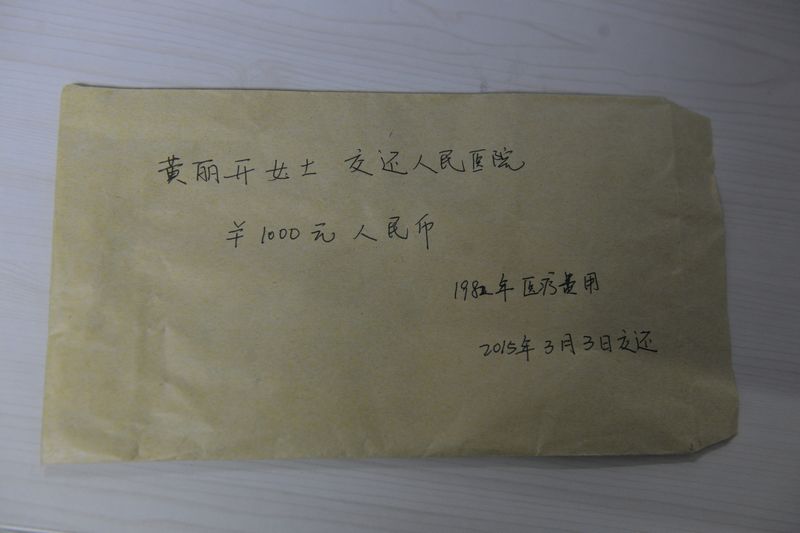 黄丽开女士 交还人民医院
¥1000元 人民币
1982年 医疗费用
2015年3月3日交还